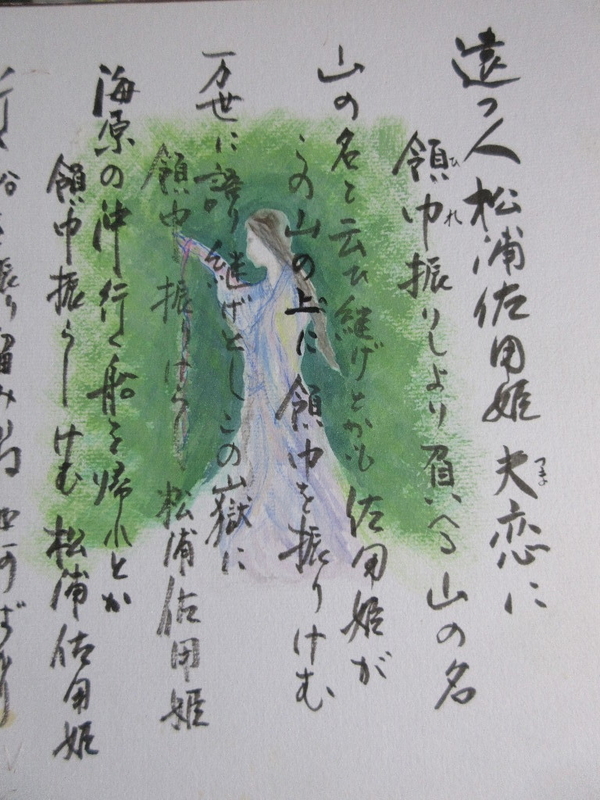 遠つ人 松浦佐用姫 夫恋に
領巾振りしより 負へる 山の名
山の名と云ひ継げとかも 佐用姫が
この山の上に 領巾を振りけむ
万世に語り継げとしこの嶽に
領巾振りけらし 松浦佐用姫
海原の沖行く船を帰れとか
領巾振らしけむ 松浦佐用姫
行く船を振り留みかね ばかり